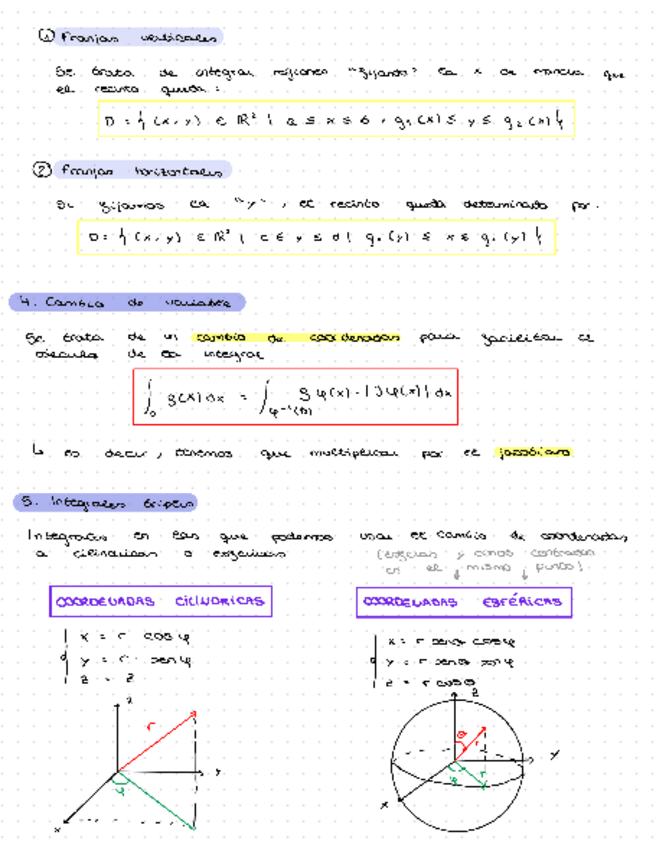 ① Franjas verticales
Se trata de integrar regiones "fijando" la x de manera que
el recinto queda:
D = { (x, y) ∈ ℝ² | a ≤ x ≤ b, g₁(x) ≤ y ≤ g₂(x) }
② Franjas horizontales
Si fijamos la "y", el recinto queda determinado por:
D = { (x, y) ∈ ℝ² | c ≤ y ≤ d | g₁(y) ≤ x ≤ g₂(y) }
4. Cambio de variable
Se trata de un cambio de coordenadas para facilitar el
cálculo de la integral
∫_D f(x) dx = ∫_{φ⁻¹(D)} f φ(x) · |J φ(x)| dx
↳ es decir, tenemos que multiplicar por el jacobiano
5. Integrales triples
Integrales en las que podemos usar el cambio de coordenadas
a cilíndricas o esféricas (esferas y conos centrados
en el mismo punto)
COORDENADAS CILÍNDRICAS
x = r cos φ
y = r · sen φ
z = z
z
r
φ
y
x
COORDENADAS ESFÉRICAS
x = r sen θ cos φ
y = r sen θ sen φ
z = r cos θ
z
θ
r
y
φ
r
x